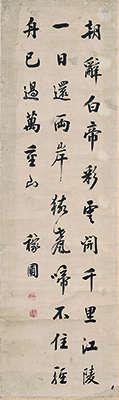 朝辭白帝彩雲間千里江陵
一日還兩岸猿聲啼不住輕
舟已過萬重山 稼圃